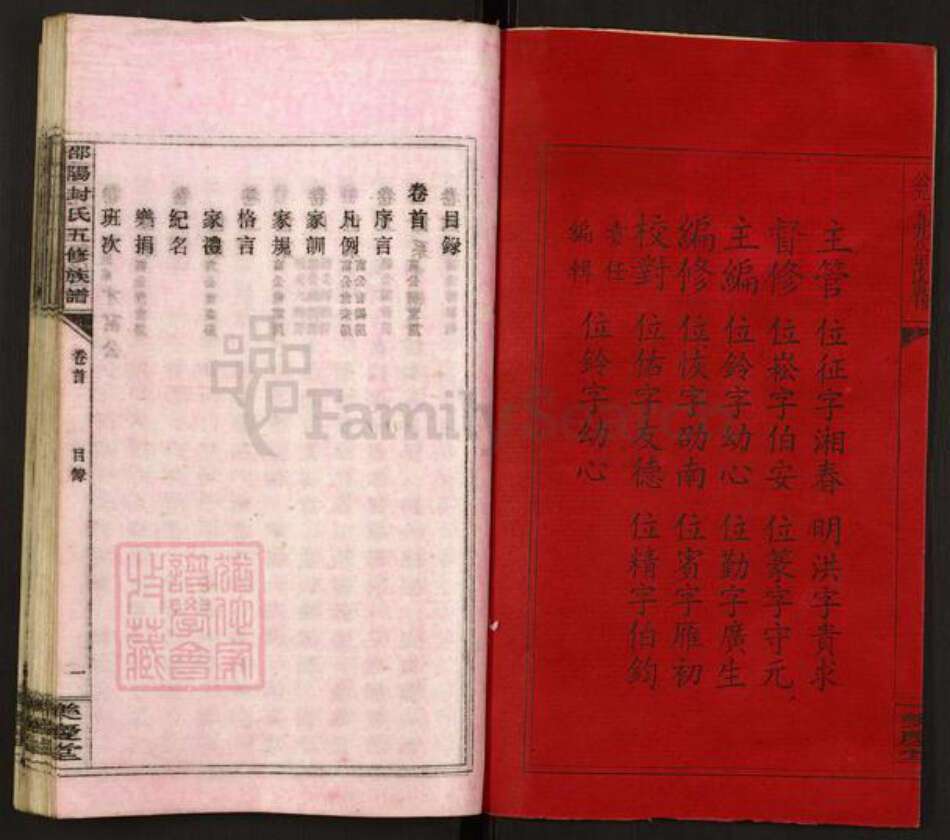 主管 位征字湘春 明洪字貴求
督修 位崧字伯安 位篆字守元
主編 位鈴字幼心 位勤字廣生
編修 位恢字劭南 位賓字雁初
校對 位佑字友德 位精字伯鈞
責任編輯 位鈴字幼心
目錄
卷首
序言
凡例
家訓
家規
格言
家禮
紀名
樂捐
班次
邵陽封氏五修族譜
卷首 目錄
一
FamilySearch